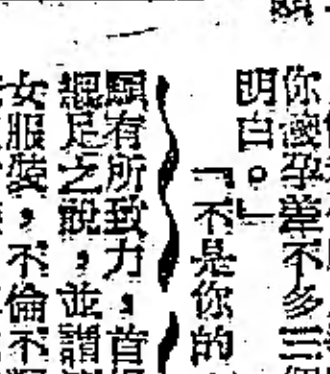 你懷孕差不多三個
明白。」
『不是你的
有所致力，首
足之說，並謂
女服裝，不倫不